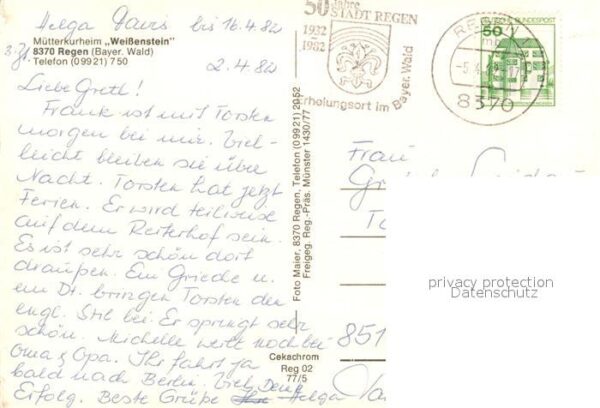 Helga Davis bis 16.4.82
Mütterkurheim „Weißenstein"
8370 Regen (Bayer. Wald)
Telefon (0 99 21) 7 50
2.4.82
Liebe Gretl!
Frank ist mit Torsten
morgen bei mir. Viel-
leicht bleiben sie über
Nacht. Torsten hat jetzt
Ferien. Er wird teilweise
auf dem Reiterhof sein.
Es ist sehr schön dort
draußen. Ein Grieche u.
ein Dt. bringen Torsten den
engl. Stil bei. Er springt sehr
schön. Michelle weilt noch bei
Oma & Opa. Ihr fahrt ja
bald nach Berlin. Viel
Erfolg. Beste Grüße Helga
Foto Maier, 8370 Regen, Telefon (0 99 21) 29 52
Freigeg. Reg.-Präs. Münster 1430/77
Cekachrom
Reg 02
77/5
50 Jahre
STADT REGEN
1932
1982
Erholungsort im Bayer. Wald
REGEN
8370
50
DEUTSCHE BUNDESPOST
Frau
851
privacy protection
Datenschutz